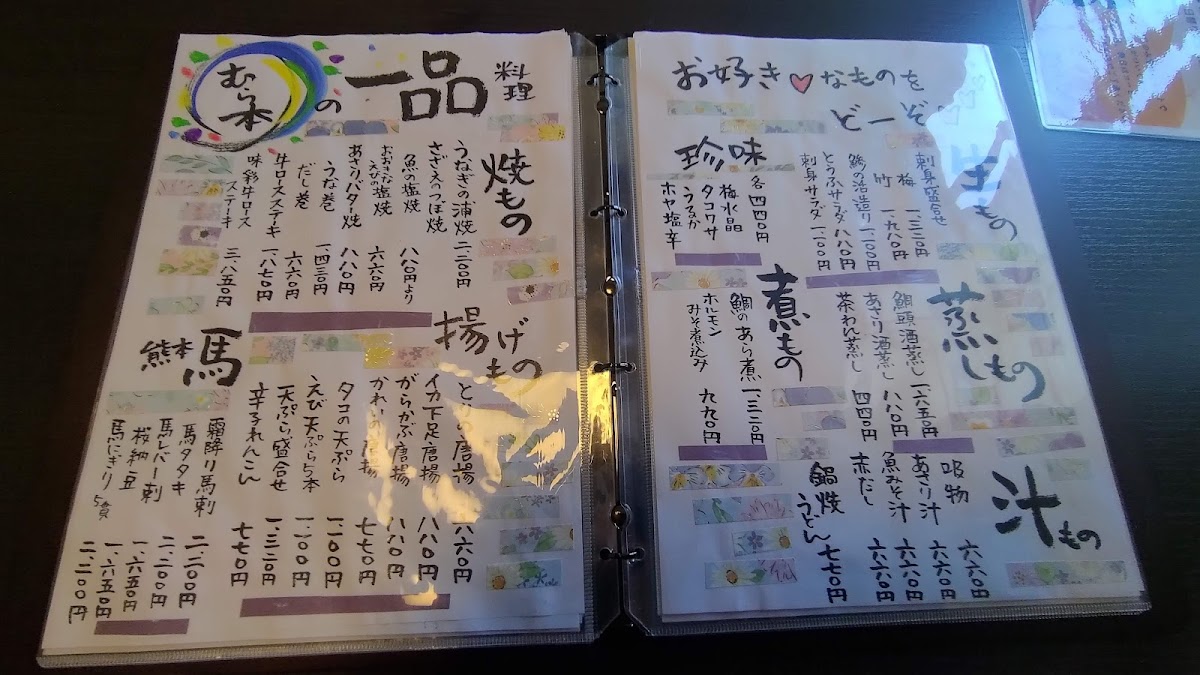 むら本の一品料理
焼もの
うなぎの蒲焼 二、二〇〇円
さざえのつぼ焼
魚の塩焼 八八〇円より
おおきなえびの塩焼 六六〇円
あさりバター焼 八八〇円
うな巻 一、四三〇円
だし巻 六六〇円
牛ロースステーキ 一、八七〇円
味彩牛ロースステーキ 三、八五〇円
揚げもの
とりの唐揚 六六〇円
イカ下足唐揚 八八〇円
がらかぶ唐揚 八八〇円
かれいの唐揚 七七〇円
タコの天ぷら 一、一〇〇円
えび天ぷら5本 一、一〇〇円
天ぷら盛合せ 一、三二〇円
辛子れんこん 七七〇円
熊本馬
霜降り馬刺 二、二〇〇円
馬タタキ 二、二〇〇円
馬レバー刺 一、六五〇円
桜納豆 一、六五〇円
馬にぎり 5貫 二、二〇〇円
お好き♡なものを
どーぞ
生もの
刺身盛合せ
梅 一、三二〇円
竹 一、九八〇円
鯵の活造り 一、一〇〇円
とうふサラダ 八八〇円
刺身サラダ 一、一〇〇円
珍味
各四四〇円
梅水晶
タコワサ
うるか
ホヤ塩辛
蒸しもの
鯛頭酒蒸し 一、六五〇円
あさり酒蒸し 八八〇円
茶わん蒸し 四四〇円
煮もの
鯛のあら煮 一、三二〇円
ホルモンみそ煮込み 九九〇円
汁もの
吸物 六六〇円
あさり汁 六六〇円
魚みそ汁 六六〇円
赤だし 六六〇円
鍋焼うどん 七七〇円